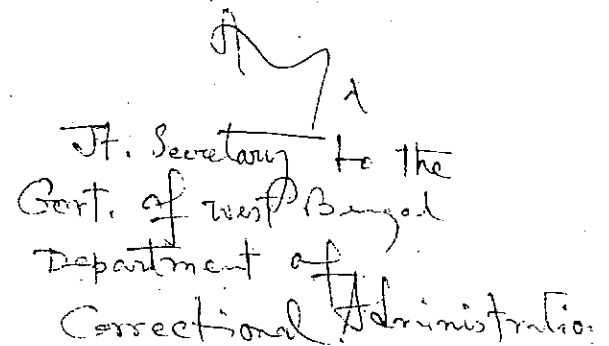 Jt. Secretary to the
Govt. of West Bengal
Department of
Correctional Administratio